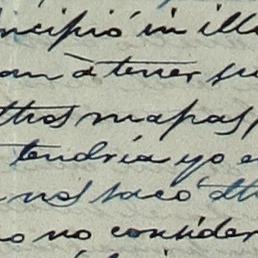 ncipió in ill
an à tener su
ttros mapas,
tendría yo e
nos sacó
no no consider